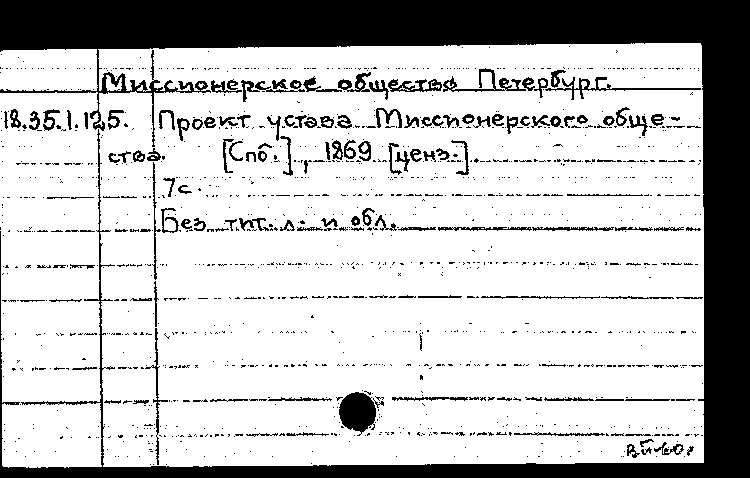 Миссионерское общество Петербург.
18.35.1.125. Проект устава Миссионерского обще-
ства. [Спб.], 1869 [ценз.].
7с.
Без тит. л. и обл.